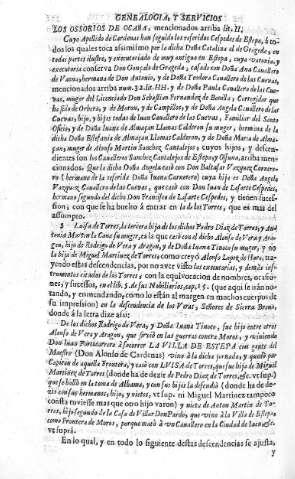 GENEALOGIA, Y SERVICIOS
LOS OSSORIOS DE OCAÑA, mencionados arriba lit. II,
Cuyo Apellido de Cardenas han seguido los referidos Cespedes de Estepa, à to-
dos los quales toca assimismo por la dicha Doña Catalina el de Grageda, en
todas partes ilustre, y executoriado de muy antiguo en Estepa, cuya
executoria conserva Don Gonçalo de Grageda, casado con Doña Ana Cavallero
de Varas, hermana de Don Antonio, y de Doña Teodora Cavallero de las Cuevas,
mencionados arriba num. 32. lit. HH. y de Doña Paula Cavallero de las Cue-
vas, muger del Licenciado Don Sebastian Fernandez de Bonilla, Corregidor que
ha sido de Orbieto, y de Moron, y de Campillos, y de Doña Angela Cavallero de las
Cuevas, muger de Don Juan Cavallero de las Cuevas, Familiar del Santo
Oficio, y de Doña Juana de Almagan Llamas Calderon su muger, hermana de la
dicha Doña Estefania de Almagan Llamas Calderon, y de Doña Maria de Alma-
gan, muger de Alonso Martin Sanchez Cantalejos, cuyos hijos, y descen-
dientes son los Cavalleros Sanchez Cantalejos de Estepa, y Ossuna, arriba men-
cionados. Que la dicha Doña Angela casò con Don Baltasar Vazquez Carrere-
ro (hermano de la referida Doña Juana Carrerero) cuya hija es Doña Angela
Vazquez Cavallero de las Cuevas, que casò con Don Juan de Lasarte Cespedes,
hermano segundo del dicho Don Francisco de Lasarte Cespedes, y tienen succes-
sion; con que se ha buelto à entrar en la de los Torres, que es mas del
assumpto.
Luisa de Torres, la tercera hija de los dichos Pedro Diaz de Torres, y An-
tonia Martin la Cana su muger, es la que casò con el dicho Alonso de Vera y Ara-
gon, hijo de Rodrigo de Vera y Aragon, y de Doña Juana Tinaco su muger, y no
la hija de Miguel Martinez de Torres, como creyò Alonso Lopez de Haro, tra-
yendo estas descendencias, por no aver visto las executorias, y demàs infor-
maciones de los Torres, con la equivocacion de nombres, ocasio-
nes, y sucessos, en el lib. 5. de sus Nobiliarios, cap. 15. (que aqui se ván no-
tando, y enmendando, como lo estàn al margen en muchos cuerpos de
su impression) en la descendencia de los Veras, Señores de Sierra Brava,
donde à la letra dize assi:
De los dichos Rodrigo de Vera, y Doña Juana Tinaco, fue hijo entre otros
Alonso de Vera y Aragon, que sirviò en las guerras contra Moros, y viniendo
Don Juan Portocarrero à socorrer LA VILLA DE ESTEPA con gente del
Maestre (Don Alonso de Cardenas) vino à la dicha jornada, y quedò por
Capitan de aquella Frontera, y casò con LUISA DE TORRES, que fue hija de Miguel
Martinez de Torres (donde ha de decir de Pedro Diaz de Torres, &c. vt sup.)
que se hallò en la toma de Alhama, y con sus hijos la defendiò (donde ha de de-
zir con sus hermanos, hijos, y nietos, vt sup. ni Miguel Martinez tampoco
consta tuviesse mas que otro hijo varon) y nieta de Anton Martin de Tor-
res, hijo segundo de la Casa de Villar Don Pardo, que vino à la Villa de Estepa,
como Frontera de Moros, porque matò à vn Cavallero en la Ciudad de Jaen, &c.
vt suprà.
En lo qual, y en todo lo siguiente destas descendencias se ajusta,
y